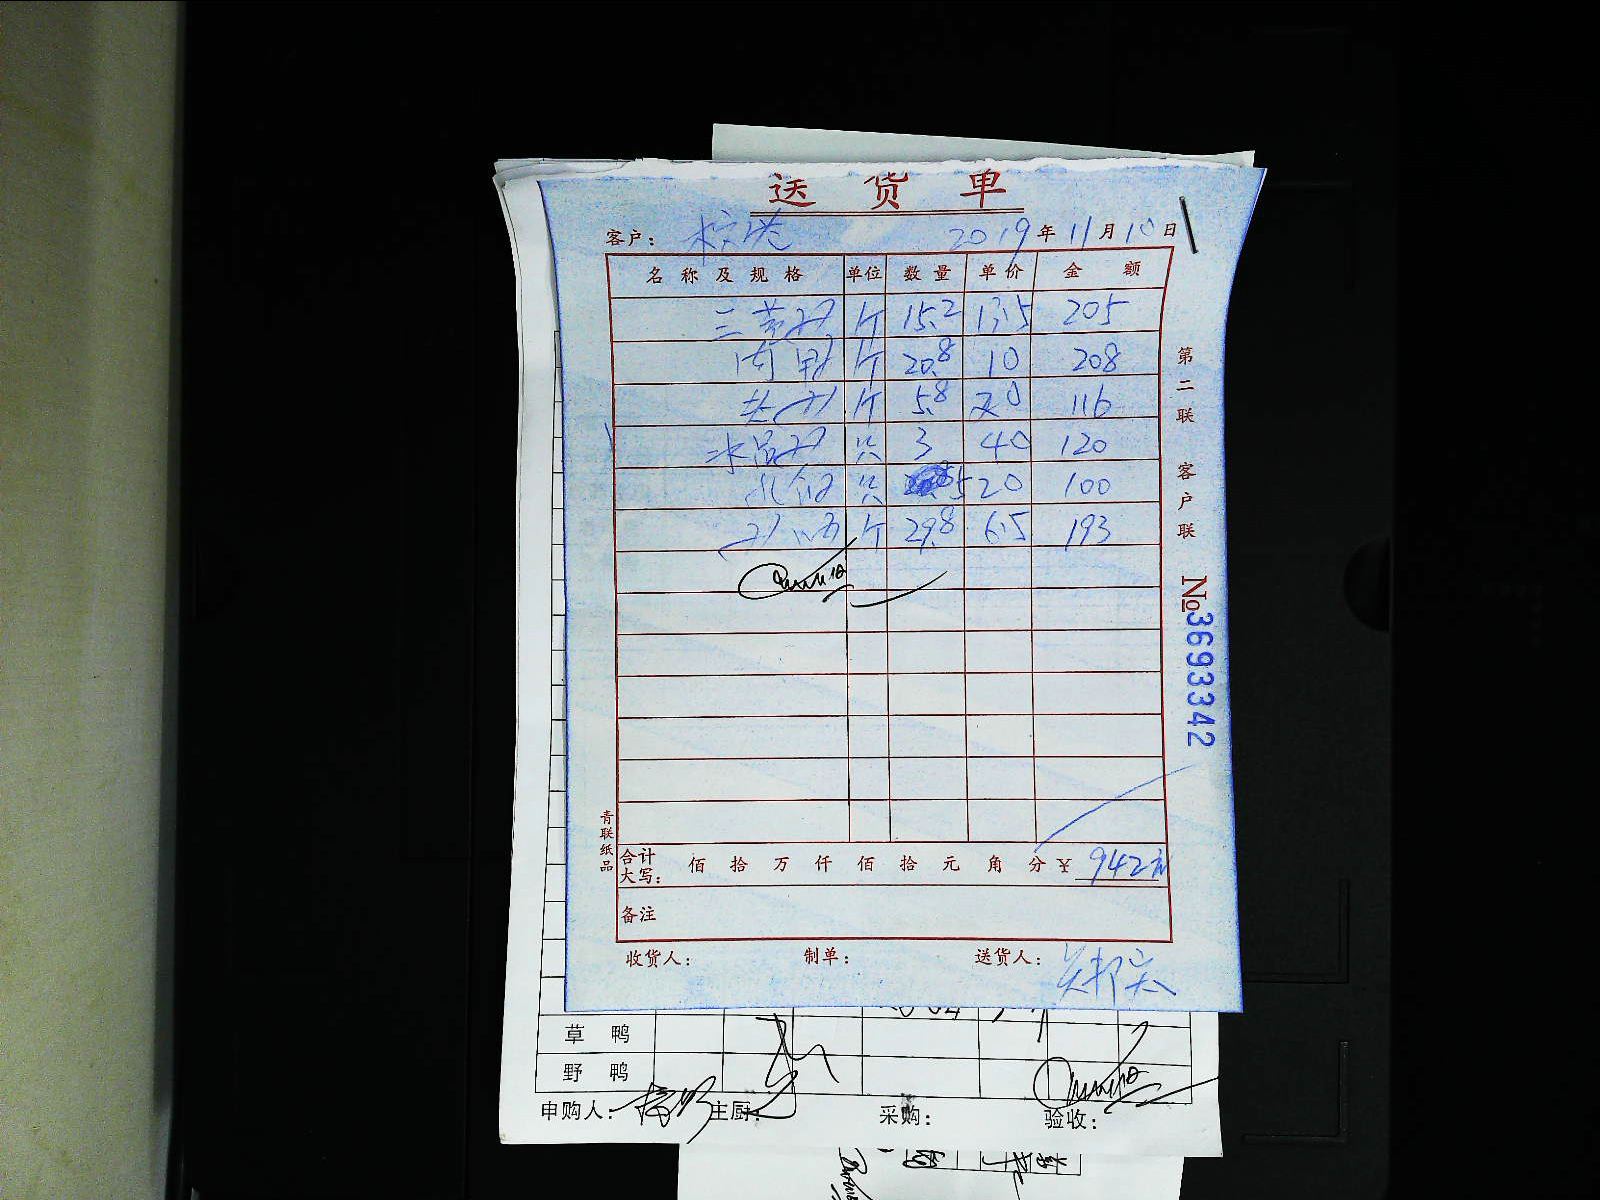 送货单
客户： 2019年11月10日
名称及规格 单位 数量 单价 金额
三黄鸡 斤 15.2 13.5 205
肉鸭 斤 20.8 10 208
斤 5.8 20 116
水晶鸡 只 3 40 120
只 5 20 100
斤 29.8 6.5 193
合计大写： 佰 拾 万 仟 佰 拾 元 角 分 ￥ 942元
备注
收货人： 制单： 送货人：
第二联 客户联
№3693342
青联纸品
草鸭
野鸭
申购人： 主厨： 采购： 验收：